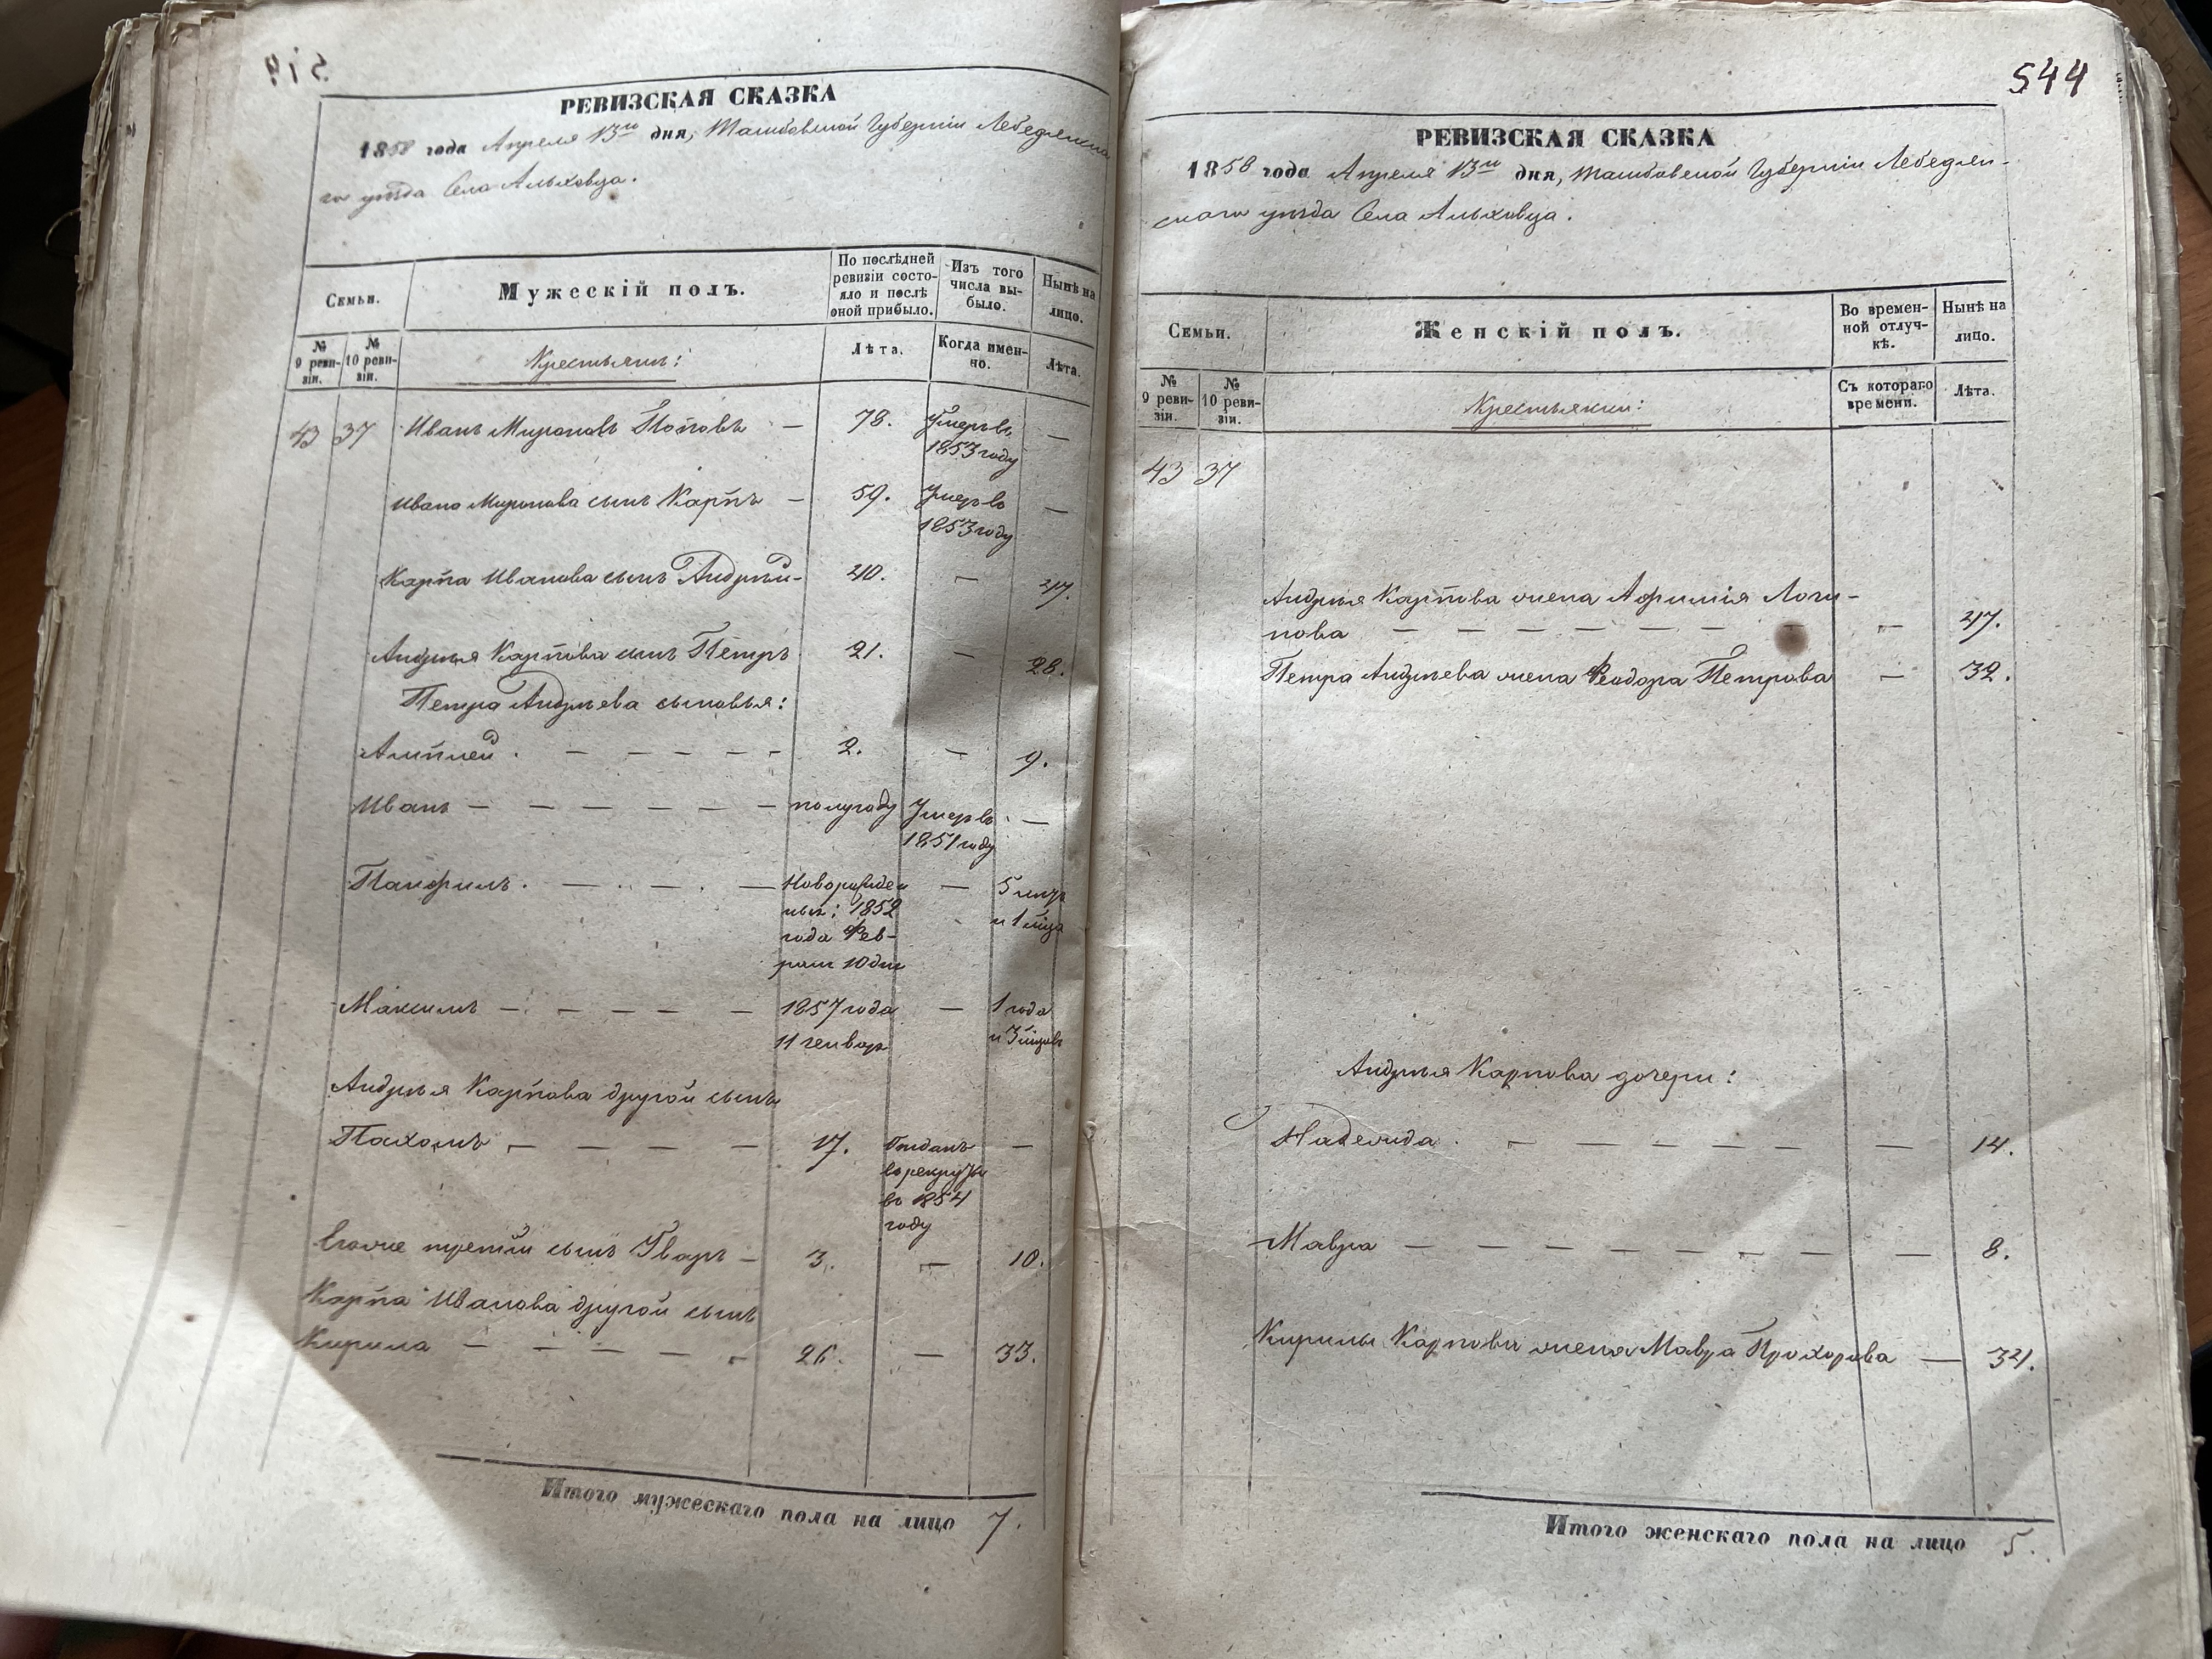 РЕВИЗСКАЯ СКАЗКА
1858 года Апреля 13го дня, Тамбовской Губерніи Лебедянска
го уѣзда Села Альховца.
Семьи.
Мужескій полъ.
По послѣдней ревизіи состояло и послѣ оной прибыло.
Изъ того числа выбыло.
Нынѣ на лицо.
№ 9 ревизіи.
№ 10 ревизіи.
Крестьянъ:
Лѣта.
Когда именно.
Лѣта.
43 37 Иванъ Мироновъ Поповъ — 78. Умеръ въ —
1853 году
Ивана Миронова сынъ Карпъ — 59. Умеръ въ —
1853 году
Карпа Иванова сынъ Андрѣй - 40. — 47.
Андрѣя Карпова сынъ Петръ 21. — 28.
Петра Андрѣева сыновья:
Амплей . — — — — — 2. — 9.
Иванъ — — — — — — полугоду Умеръ въ —
1851 году
Панфилъ . — — — — Новорожден — 5 летъ
ный: 1852 и 1 мца
года Фев-
раля 10 дня
Максимъ — — — — — 1857 года — 1 года
11 генвар и 3 мцовъ
Андрѣя Карпова другой сынъ
Пахомъ — — — — 17. Отданъ —
въ рекруты
въ 1854
году
Егоже третій сынъ Уваръ — 3. — 10.
Карпа Иванова другой сынъ
Кирила — — — — — 26. — 33.
Итого мужескаго пола на лицо 7.
544
РЕВИЗСКАЯ СКАЗКА
1858 года Апреля 13го дня, Тамбовской Губерніи Лебедян-
скаго уѣзда Села Альховца.
Семьи.
Женскій полъ.
Во временной отлучкѣ.
Нынѣ на лицо.
№ 9 ревизіи.
№ 10 ревизіи.
Крестьянки:
Съ котораго времени.
Лѣта.
43 37
Андрѣя Карпова жена Афимія Логи-
нова — — — — — — — — 47.
Петра Андрѣева жена Феодора Петрова — 32.
Андрѣя Карпова дочери:
Надежда . — — — — — — 14.
Мавра — — — — — — — — 8.
Кирилы Карпова жена Мавра Прохорова — 34.
Итого женскаго пола на лицо 5.